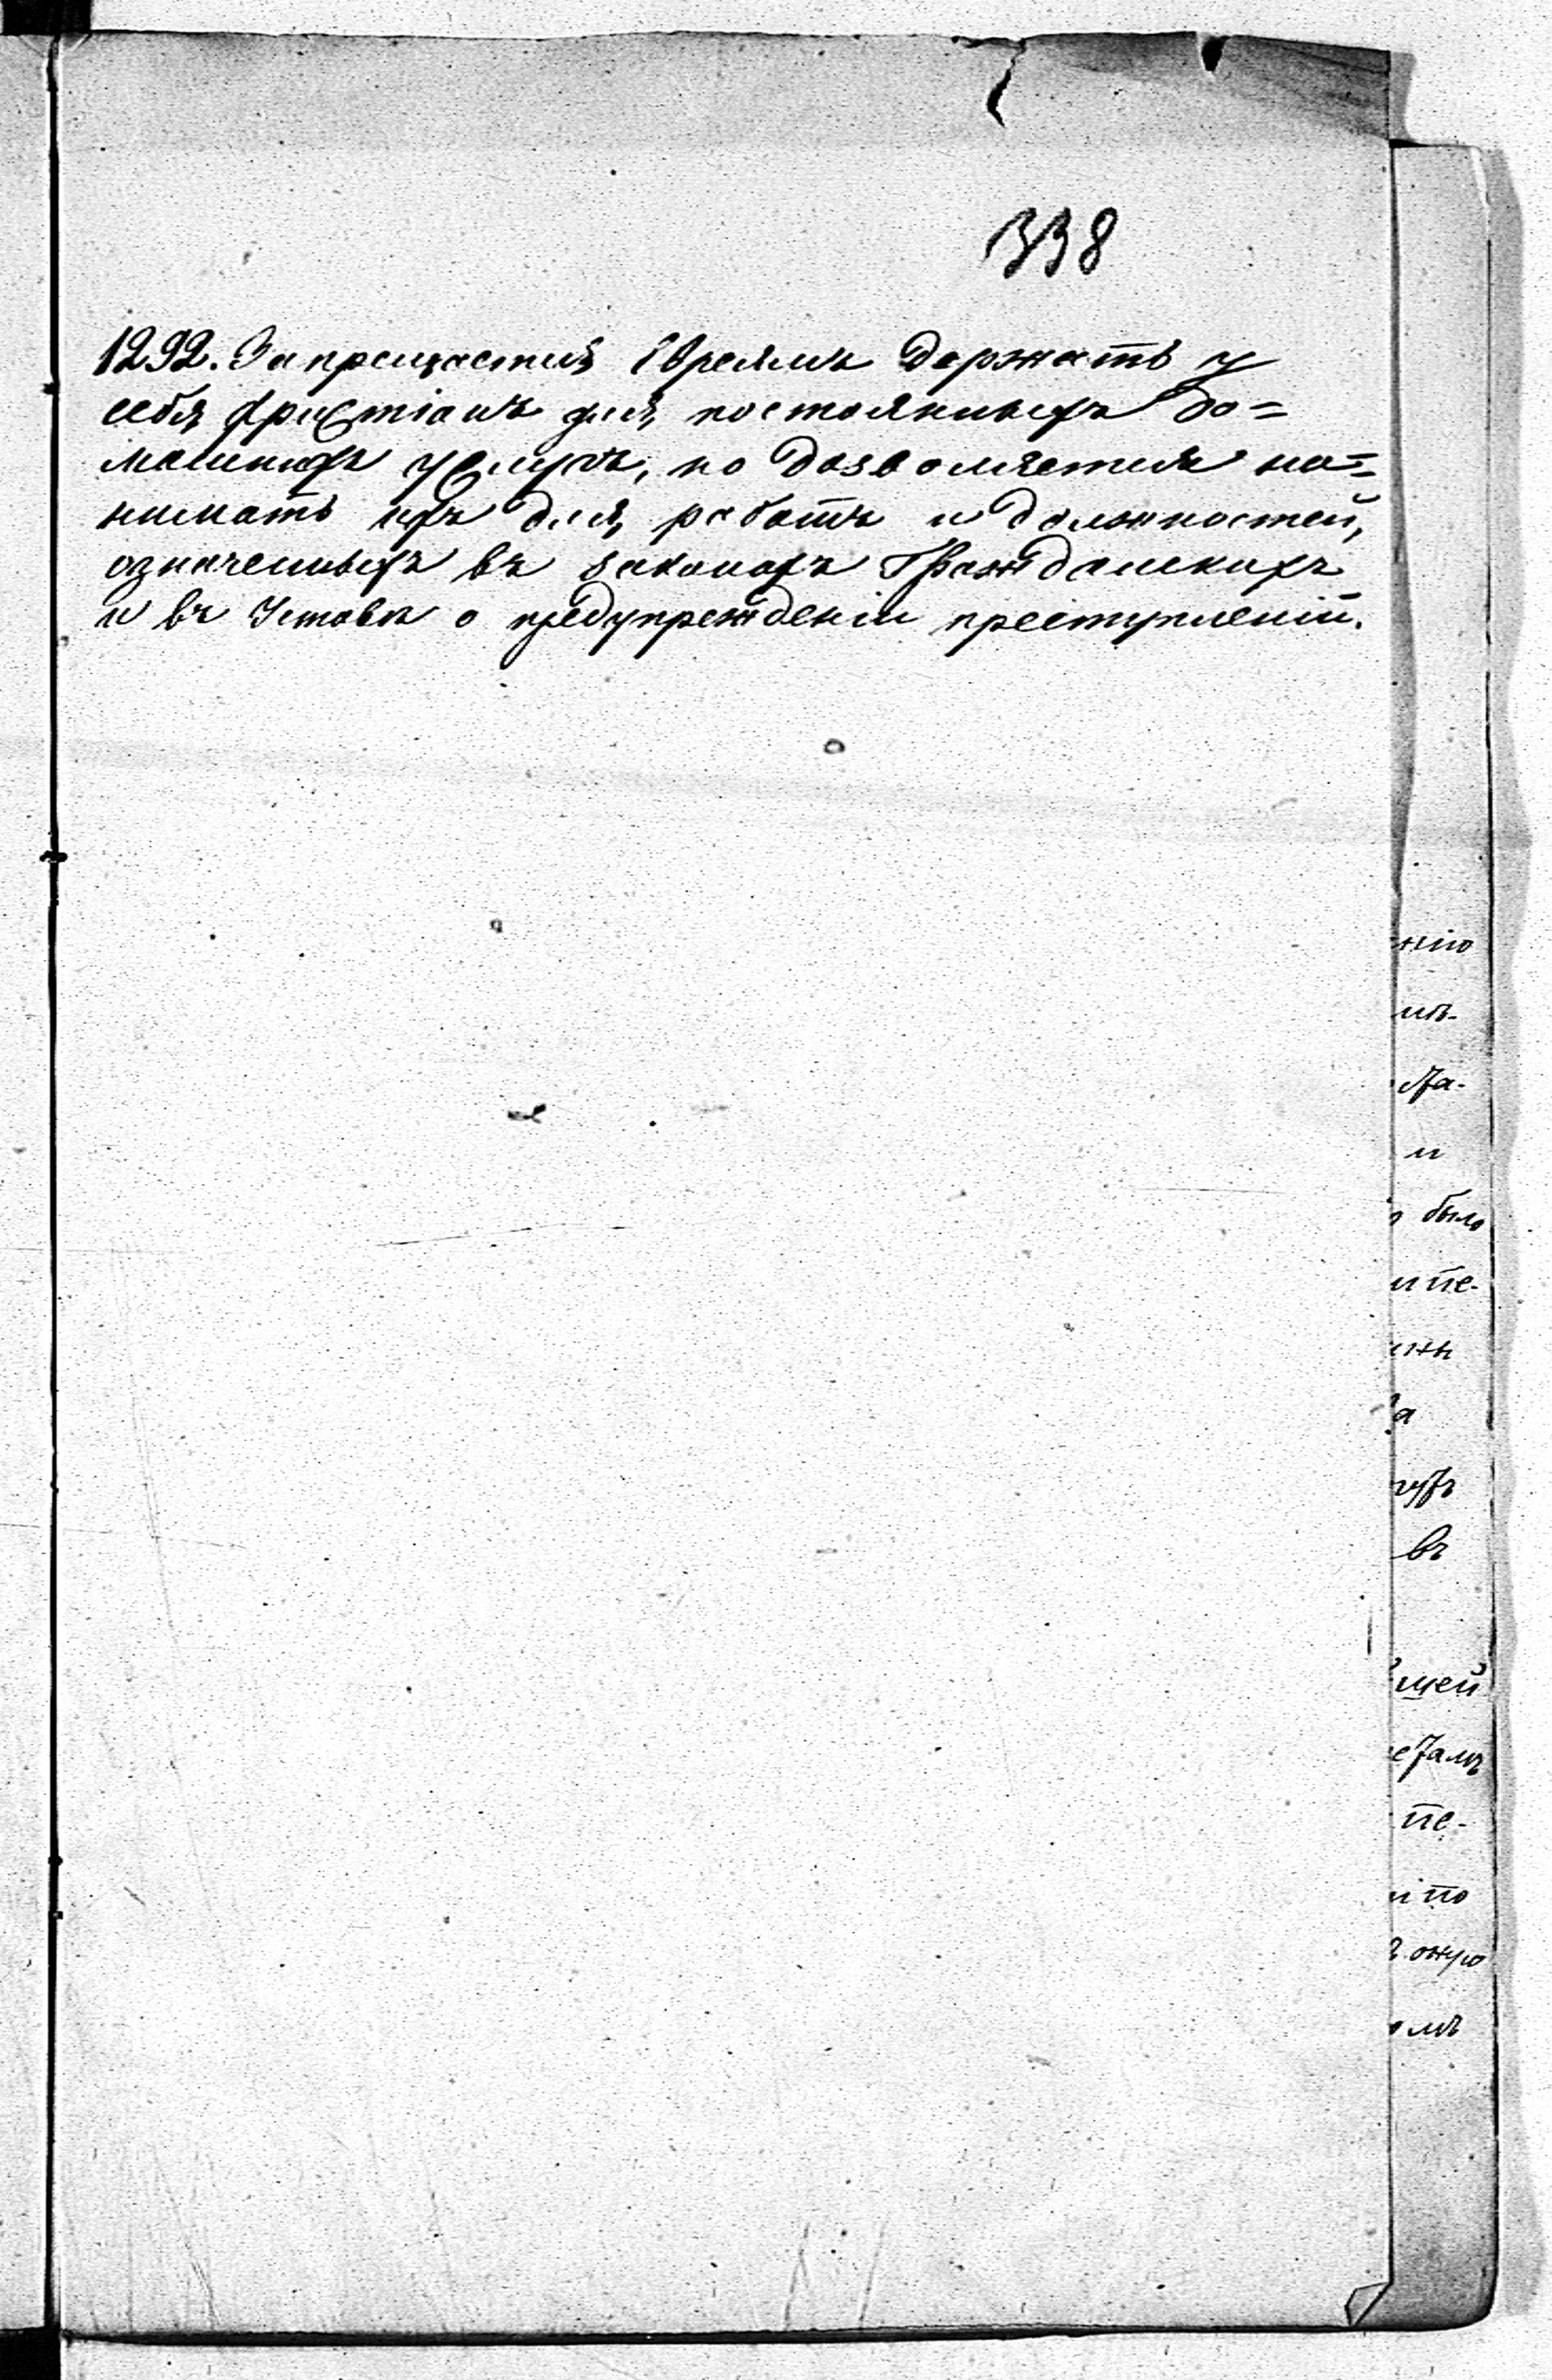 338
1292. Запрещается Евреямъ держать у
себя христіанъ для постоянныхъ до=
машнихъ услугъ, но дозволяется на=
нимать ихъ для работъ и должностей,
означенныхъ въ законахъ Гражданскихъ
и въ Уставѣ о предупрежденіи преступленій.
нію
и
было
пе-
въ
щей
пе-
по
оную
омъ